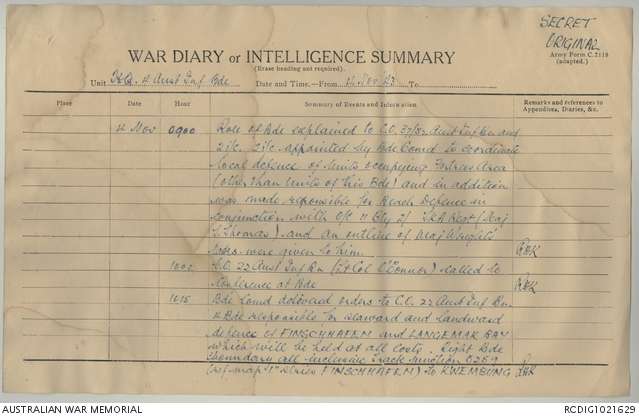 SECRET
ORIGINAL
WAR DIARY or INTELLIGENCE SUMMARY
(Erase heading not required).
Army Form C.2118
(adapted.)
Unit H.Q. 4 Aust Inf Bde Date and Time—From 4 Nov 43 To
Place Date Hour Summary of Events and Information Remarks and references to Appendices, Diaries, &c.
4 Nov 0900 Role of Bde explained to C.O. 37/52 Aust Inf Bn and
2i/c. 2i/c appointed by Bde Comd to coordinate
local defence of units occupying Area
(other than units of this Bde) and in addition
was made responsible for Beach Defence in
conjunction with O/C 11 Bty 2/ (Maj
Thomas) and an outline of Maj Wright's
were given to him. RHK
C.O. 22 Aust Inf Bn (Lt Col O'Connor) called to
conference at Bde RHK
1015 Bde Comd delivered orders to C.O. 22 Aust Inf Bn.
4 Bde responsible for seaward and landward
defence of FINSCHHAFEN and LANGEMAK BAY
which will be held at all costs. Right Bde
boundary all inclusive track junction
(ref map 1" series FINSCHHAFEN) to KWEMBUNG RHK
AUSTRALIAN WAR MEMORIAL RCDIG1021629